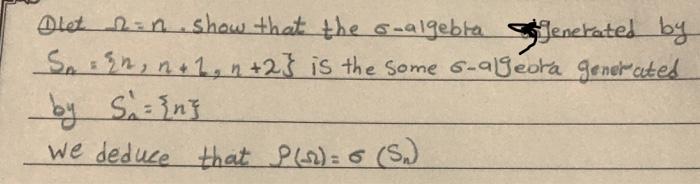 ① let Ω = n . show that the σ-algebra generated by
Sn = {n, n+1, n+2} is the some σ-algebra generated
by S'n = {n}
we deduce that P(Ω) = σ (Sn)